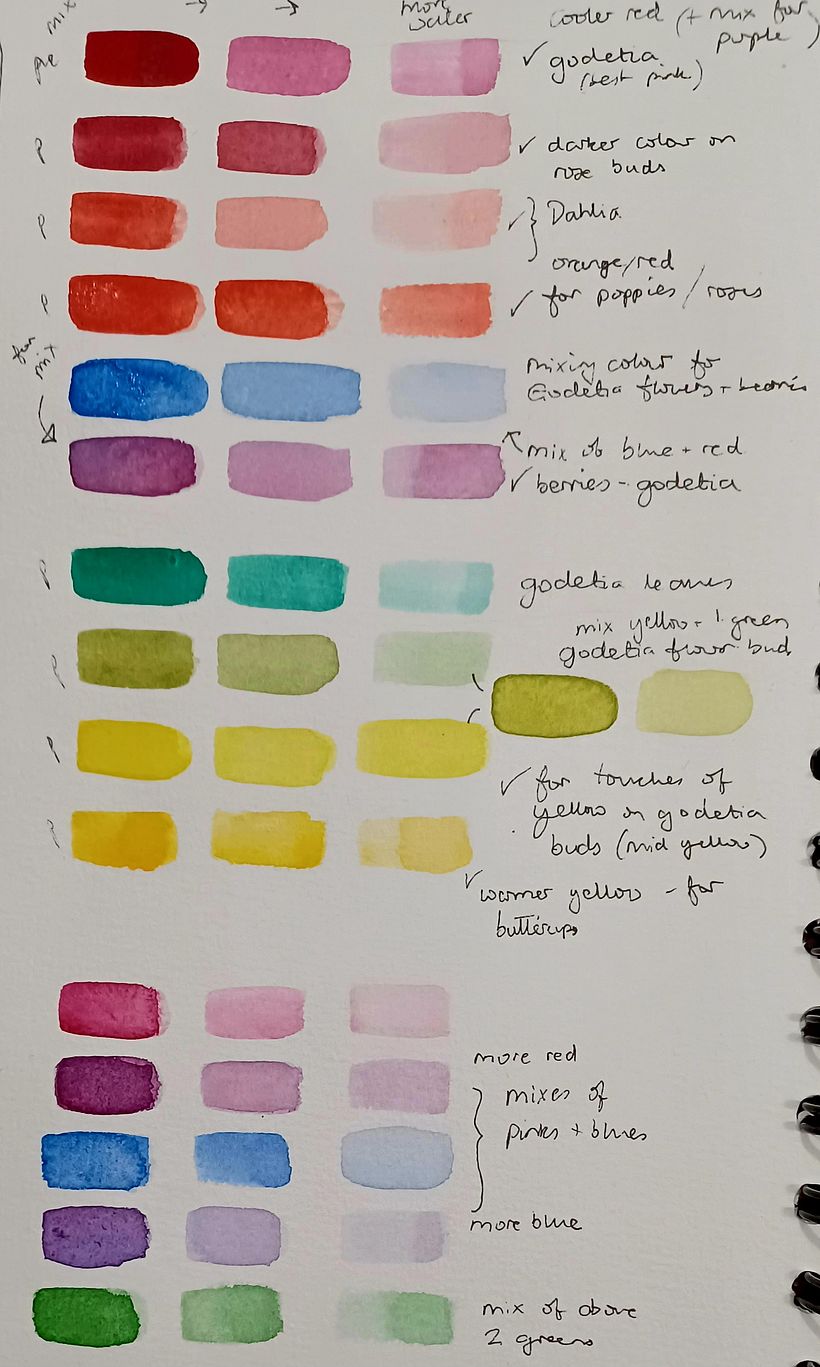 mix
more
water
cooler red (+ mix for
purple)
✓ godetia
(best pink)
P
✓ darker colour on
rose buds
P
✓ } Dahlia
orange/red
P
✓ for poppies / roses
for
mix
mixing colour for
Godetia flowers + berries
mix of blue + red
✓ berries - godetia
P
godetia leaves
mix yellow + 1 green
godetia flower bud
P
P
✓ for touches of
yellow on godetia
buds (mid yellow)
P
✓ warmer yellow - for
buttercups
more red
mixes of
pinks + blues
more blue
mix of above
2 greens